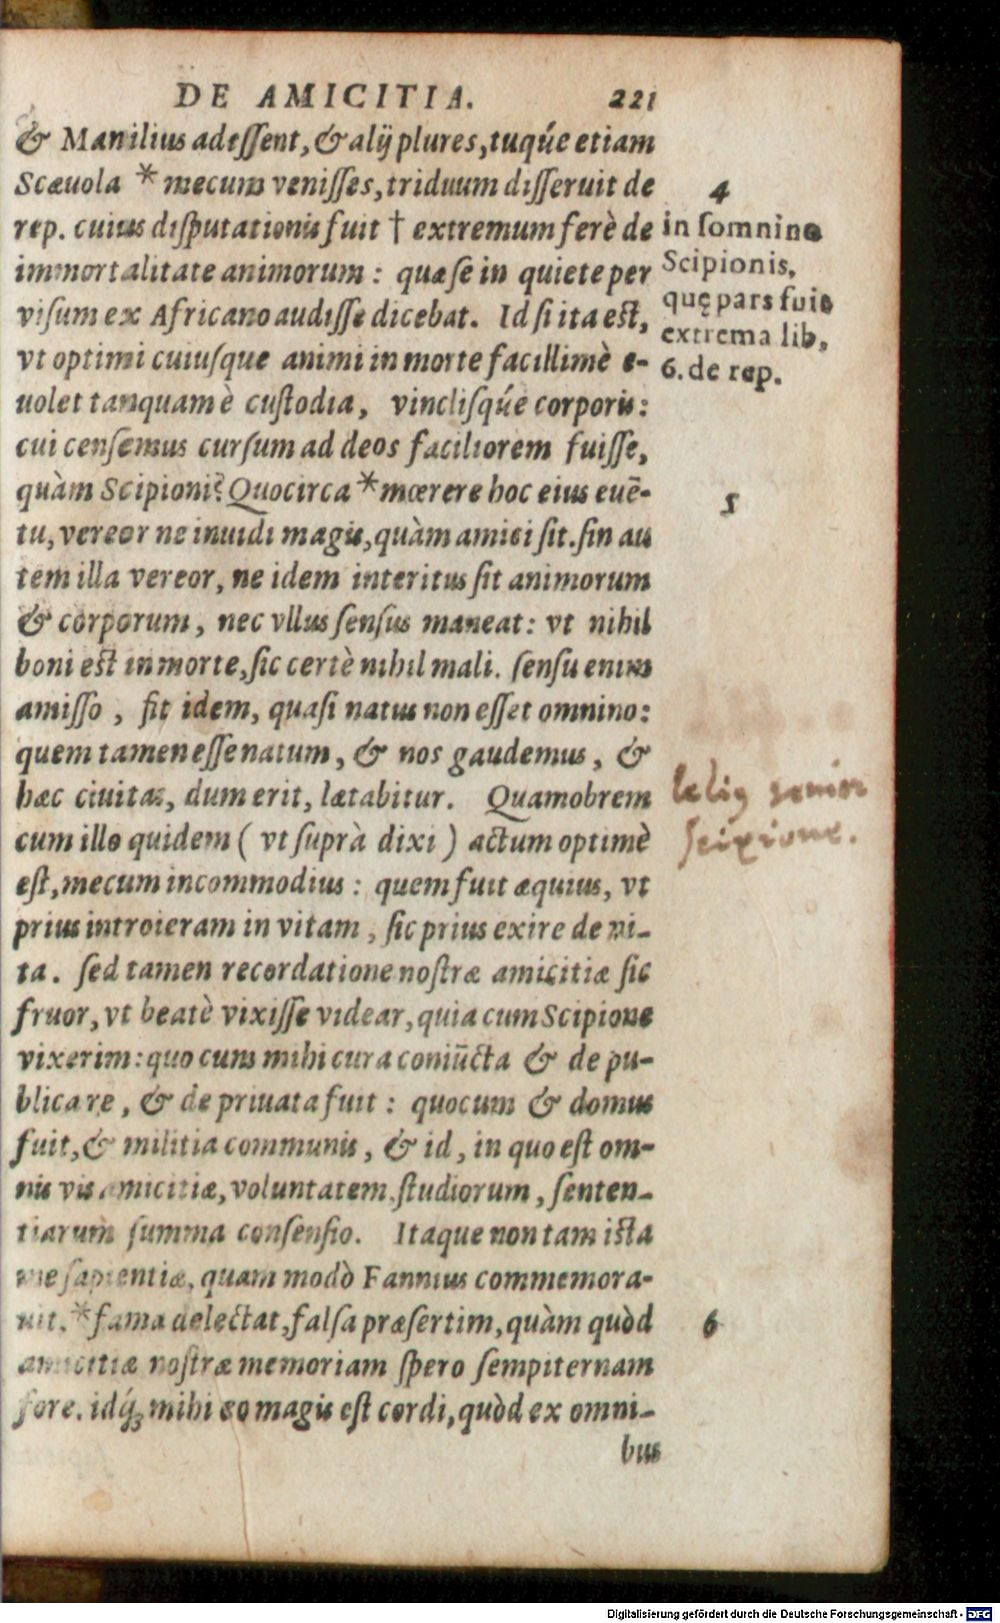 DE AMICITIA. 221
& Manilius adeſſent, & alij plures, tuq́ue etiam
Scæuola * mecum veniſſes, triduum diſſeruit de
rep. cuius diſputationis fuit † extremum ferè de
immortalitate animorum : quæ ſe in quiete per
viſum ex Africano audiſſe dicebat. Id ſi ita eſt,
vt optimi cuiuſque animi in morte facillimè e-
uolet tanquam è cuſtodia, vincliſq́ue corporis:
cui cenſemus curſum ad deos faciliorem fuiſſe,
quàm Scipioni? Quocirca * mœrere hoc eius euē-
tu, vereor ne inuidi magis, quàm amici ſit. ſin au
tem illa vereor, ne idem interitus ſit animorum
& corporum, nec vllus ſenſus maneat: vt nihil
boni eſt in morte, ſic certè nihil mali. ſenſu enim
amiſſo, fit idem, quaſi natus non eſſet omnino:
quem tamen eſſe natum, & nos gaudemus, &
hæc ciuitas, dum erit, lætabitur. Quamobrem
cum illo quidem ( vt ſuprà dixi ) actum optimè
eſt, mecum incommodius : quem fuit æquius, vt
prius introieram in vitam, ſic prius exire de vi-
ta. ſed tamen recordatione noſtræ amicitiæ ſic
fruor, vt beatè vixiſſe videar, quia cum Scipione
vixerim: quo cum mihi cura coniūcta & de pu-
blica re, & de priuata fuit : quocum & domus
fuit, & militia communis, & id, in quo eſt om-
nis vis amicitiæ, voluntatem. ſtudiorum, ſenten-
tiarum ſumma conſenſio. Itaque non tam iſta
me ſapientiæ, quam modò Fannius commemora-
uit. * fama delectat, falſa præſertim, quàm quòd
amicitiæ noſtræ memoriam ſpero ſempiternam
fore. idq́; mihi eo magis eſt cordi, quòd ex omni-
bus
4
in ſomnino
Scipionis,
quę pars fuit
extrema lib.
6. de rep.
5
lelius senior
scipione.
6
Digitalisierung gefördert durch die Deutsche Forschungsgemeinschaft - DFG